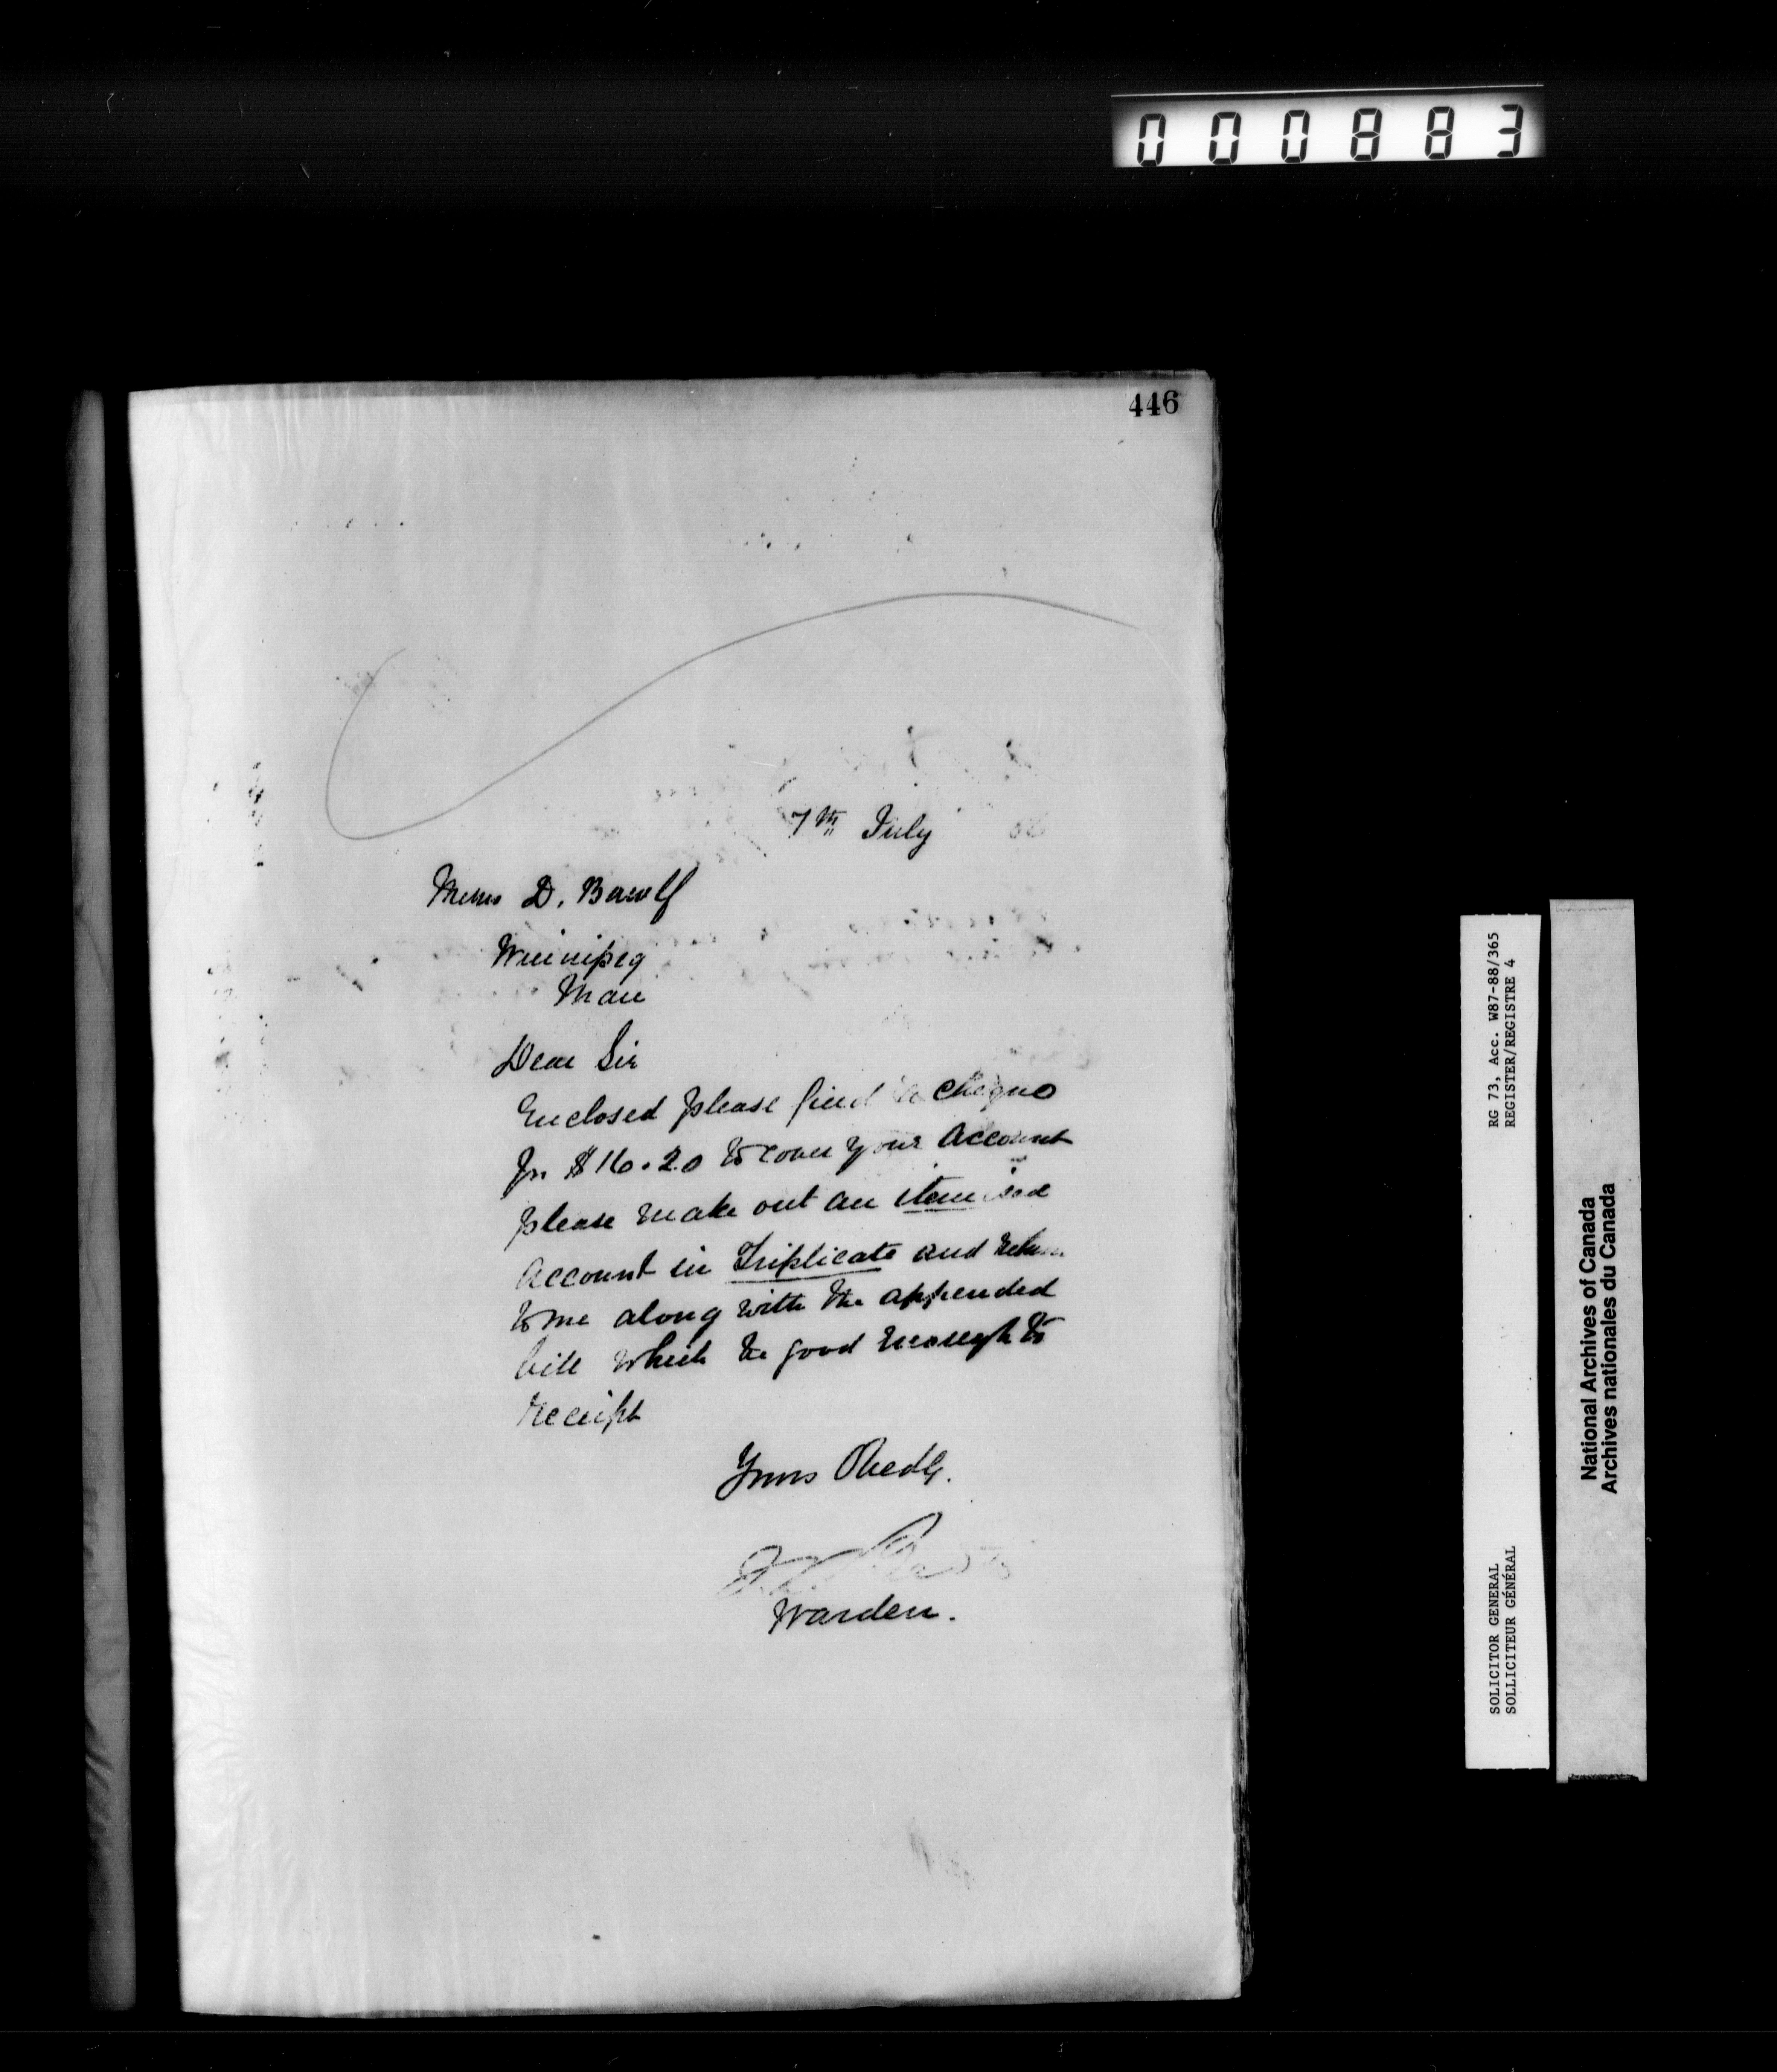 000883
446
7th July
Messrs D. Bawlf
Winnipeg
Man
Dear Sir
Enclosed please find a cheque
for $16.20 to cover your Account
please make out an itemised
Account in Triplicate and return
to me along with the appended
bill which be good enough to
receipt
Yours Obedly.
Warden.
RG 73, Acc. W87-88/365
REGISTER/REGISTRE 4
SOLICITOR GENERAL
SOLLICITEUR GÉNÉRAL
National Archives of Canada
Archives nationales du Canada